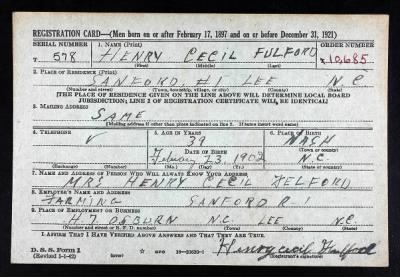 REGISTRATION CARD—(Men born on or after February 17, 1897 and on or before December 31, 1921)
SERIAL NUMBER 1. NAME (Print) ORDER NUMBER
T 578 HENRY CECIL FULFORD T 10,685
(First) (Middle) (Last)
2. PLACE OF RESIDENCE (Print)
SANFORD, #1 LEE N.C
(Number and street) (Town, township, village, or city) (County) (State)
[THE PLACE OF RESIDENCE GIVEN ON THE LINE ABOVE WILL DETERMINE LOCAL BOARD
JURISDICTION; LINE 2 OF REGISTRATION CERTIFICATE WILL BE IDENTICAL]
3. MAILING ADDRESS
SAME
[Mailing address if other than place indicated on line 2. If same insert word same]
4. TELEPHONE 5. AGE IN YEARS 6. PLACE OF BIRTH
39 NASH
DATE OF BIRTH (Town or county)
23, 1902 N.C.
(Exchange) (Number) (Mo.) (Day) (Yr.) (State or country)
7. NAME AND ADDRESS OF PERSON WHO WILL ALWAYS KNOW YOUR ADDRESS
MRS HENRY CECIL FELFORD
8. EMPLOYER'S NAME AND ADDRESS
FARMING SANFORD R.1
9. PLACE OF EMPLOYMENT OR BUSINESS
H.T. OSBURN N.C. LEE N.C
(Number and street or R. F. D. number) (Town) (County) (State)
I AFFIRM THAT I HAVE VERIFIED ABOVE ANSWERS AND THAT THEY ARE TRUE.
D. S. S. Form 1 Henry cecil Fulford
(Revised 1-1-42) (over) (Registrant's signature)